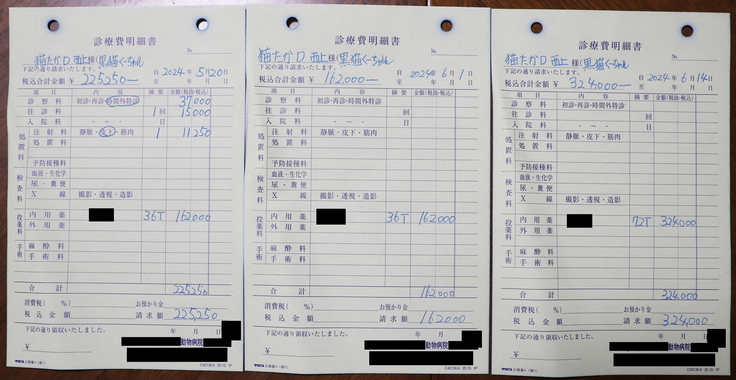 診療費明細書
№
猫たかD 西上 様(黒猫くーちゃん)
下記の通り請求いたします。
自 2024年5月20日
税込合計金額 ¥225250—
至 年 月 日
項 目 内 容 摘 要 金額(税抜・税込)
診 察 料 初診・再診・時間外特診 37000
往 診 料 1回 15000
入 院 料 ・ 〜 ・ 日
処置料
注 射 料 静脈・皮下・筋肉 1 11250
処 置 料
予防接種料
検査料
血液・生化学
尿・糞便
X 線 撮影・透視・造影
投薬料
内 用 薬 36T 162000
外 用 薬
手術
麻 酔 料
手 術 料
合 計 225250
消費税( %) お預かり金
税 込 金 額 請 求 額 225250
下記の通り領収いたしました。 年 月 日
¥
動物病院
診療費明細書
№
猫たかD 西上 様(黒猫くーちゃん)
下記の通り請求いたします。
自 2024年6月1日
税込合計金額 ¥162000—
至 年 月 日
項 目 内 容 摘 要 金額(税抜・税込)
診 察 料 初診・再診・時間外特診
往 診 料 回
入 院 料 ・ 〜 ・ 日
処置料
注 射 料 静脈・皮下・筋肉
処 置 料
予防接種料
検査料
血液・生化学
尿・糞便
X 線 撮影・透視・造影
投薬料
内 用 薬 36T 162000
外 用 薬
手術
麻 酔 料
手 術 料
合 計 162000
消費税( %) お預かり金
税 込 金 額 請 求 額 162000
下記の通り領収いたしました。 年 月 日
¥
動物病院
診療費明細書
№
猫たかD 西上 様(黒猫くーちゃん)
下記の通り請求いたします。
自 2024年6月14日
税込合計金額 ¥324000—
至 年 月 日
項 目 内 容 摘 要 金額(税抜・税込)
診 察 料 初診・再診・時間外特診
往 診 料 回
入 院 料 ・ 〜 ・ 日
処置料
注 射 料 静脈・皮下・筋肉
処 置 料
予防接種料
検査料
血液・生化学
尿・糞便
X 線 撮影・透視・造影
投薬料
内 用 薬 72T 324000
外 用 薬
手術
麻 酔 料
手 術 料
合 計 324000
消費税( %) お預かり金
税 込 金 額 請 求 額 324000
下記の通り領収いたしました。 年 月 日
¥
動物病院